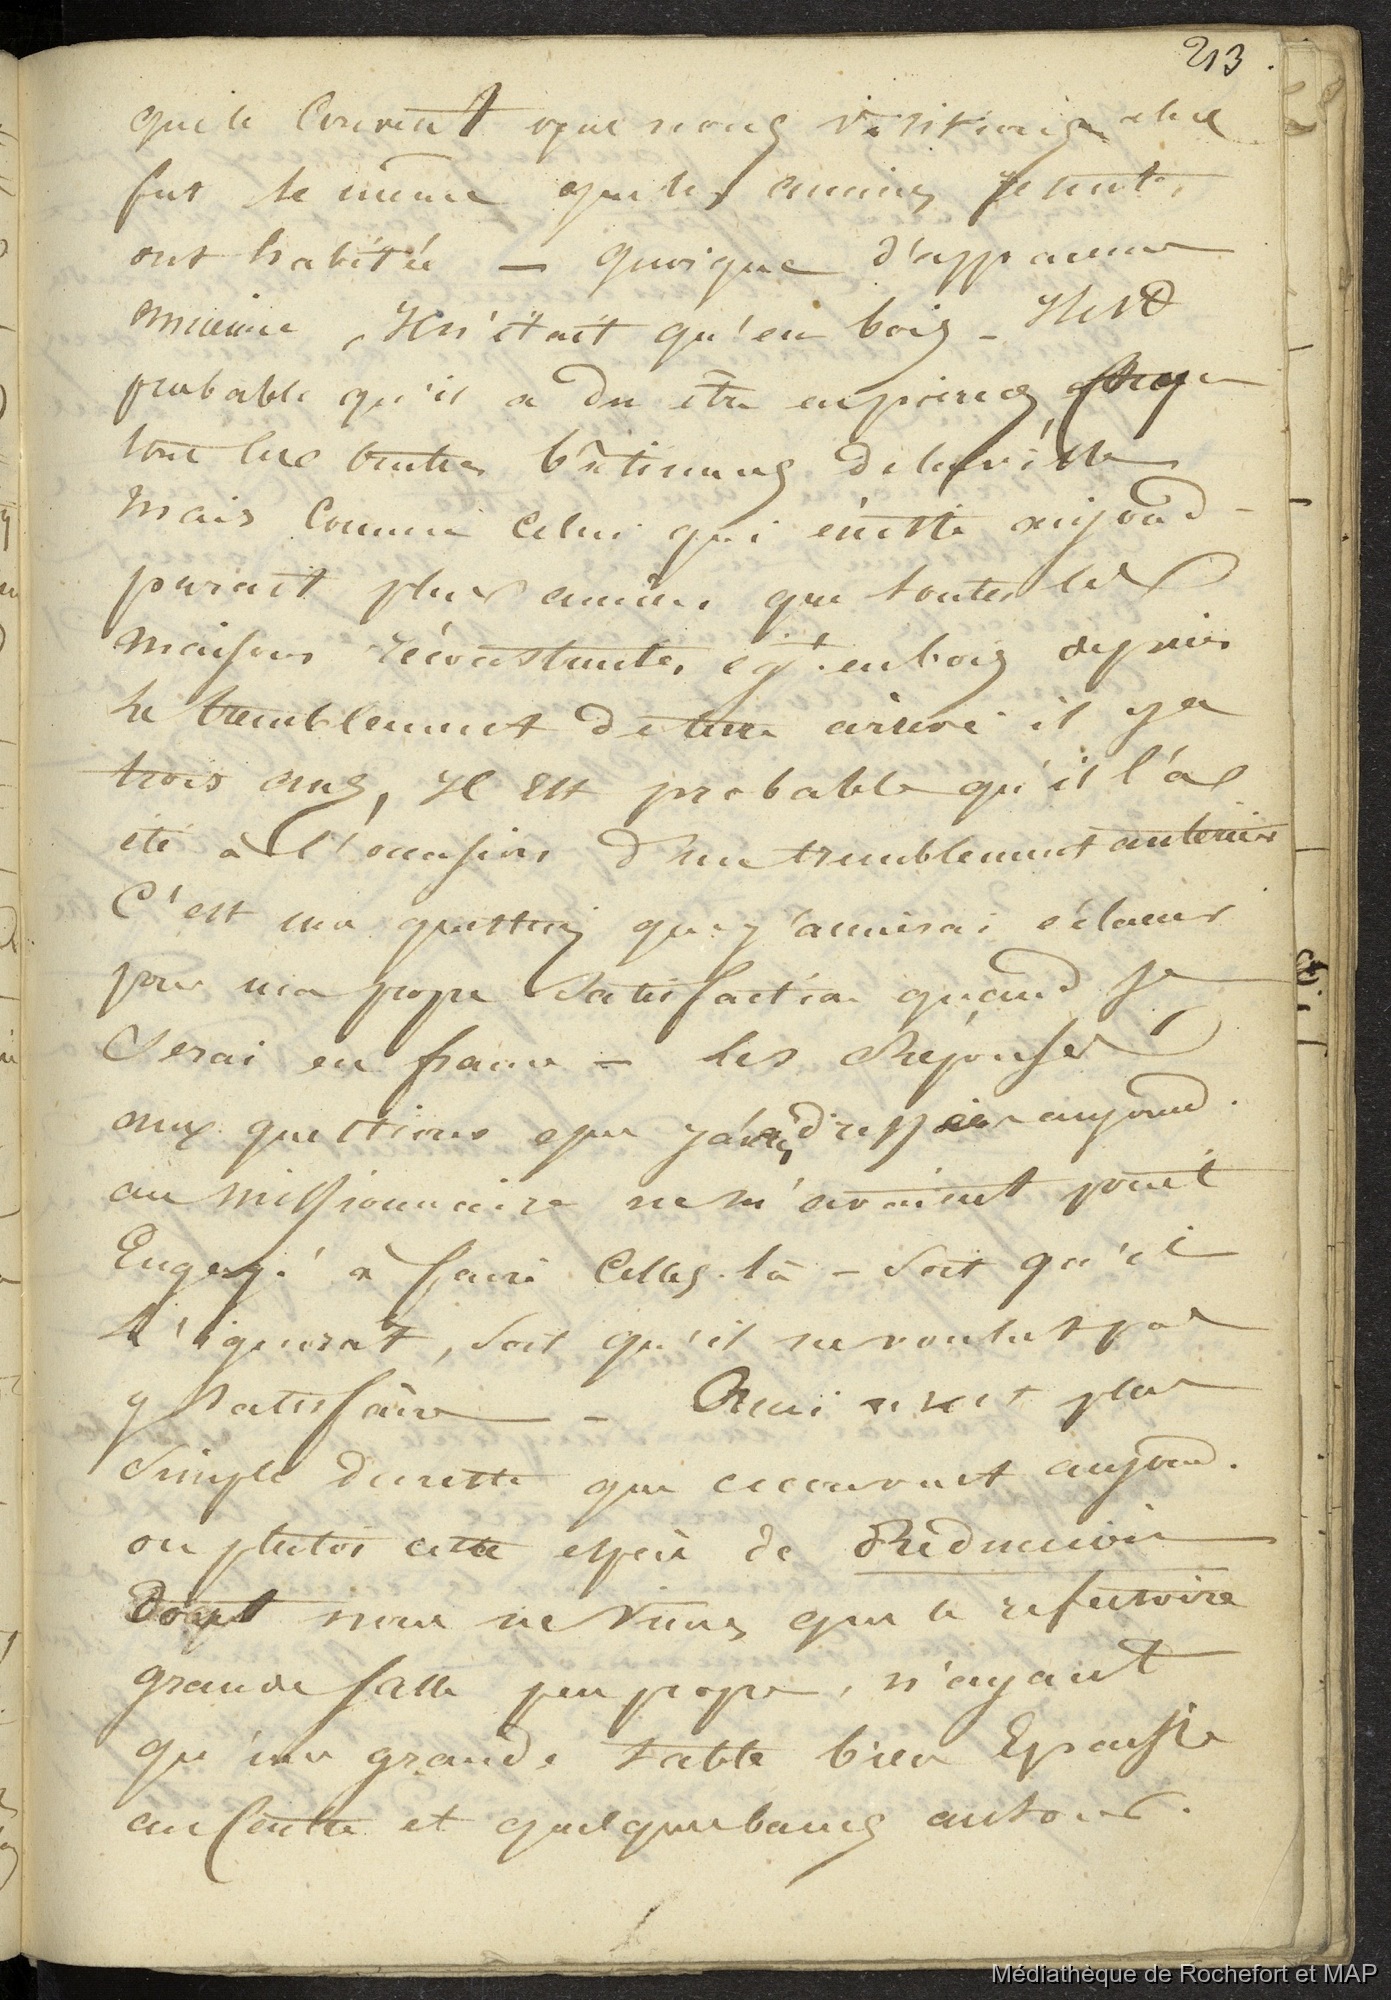 213.
que le Couvent que nous visitions
fut le même que les anciens jesuites
ont habitée — quoique d'apparence
ancienne, Il n'était qu'en bois — Il est
probable qu'il a du être en pierres,
tous les autres bâtimens de la ville
mais comme celui qui existe aujourd
parait plus ancien que toutes les
maisons réconstruites égt. en bois depuis
le tremblement de terre arrivé il y a
trois ans, Il est probable qu'il l'a
été à l'occasion d'un tremblement anterieur
C'est une question que j'aimerai éclaircir
pour ma propre satisfaction quand je
serai en france — Les Réponses
aux questions que j'avais adressées aujourd.
au missionnaire ne m'avaient point
Engagé à faire Celles-là — soit qu'il
l'ignorat, soit qu'il ne voulut pas
y satisfaire — Rien n'est plus
simple du reste que ce couvent aujourd.
ou plutôt cette espèce de Réduction
Dont nous ne vimes que le refectoire
grande salle peu propre, n'ayant
qu'une grande table bien Epaisse
au Centre et quelques bancs autour.
Médiathèque de Rochefort et MAP